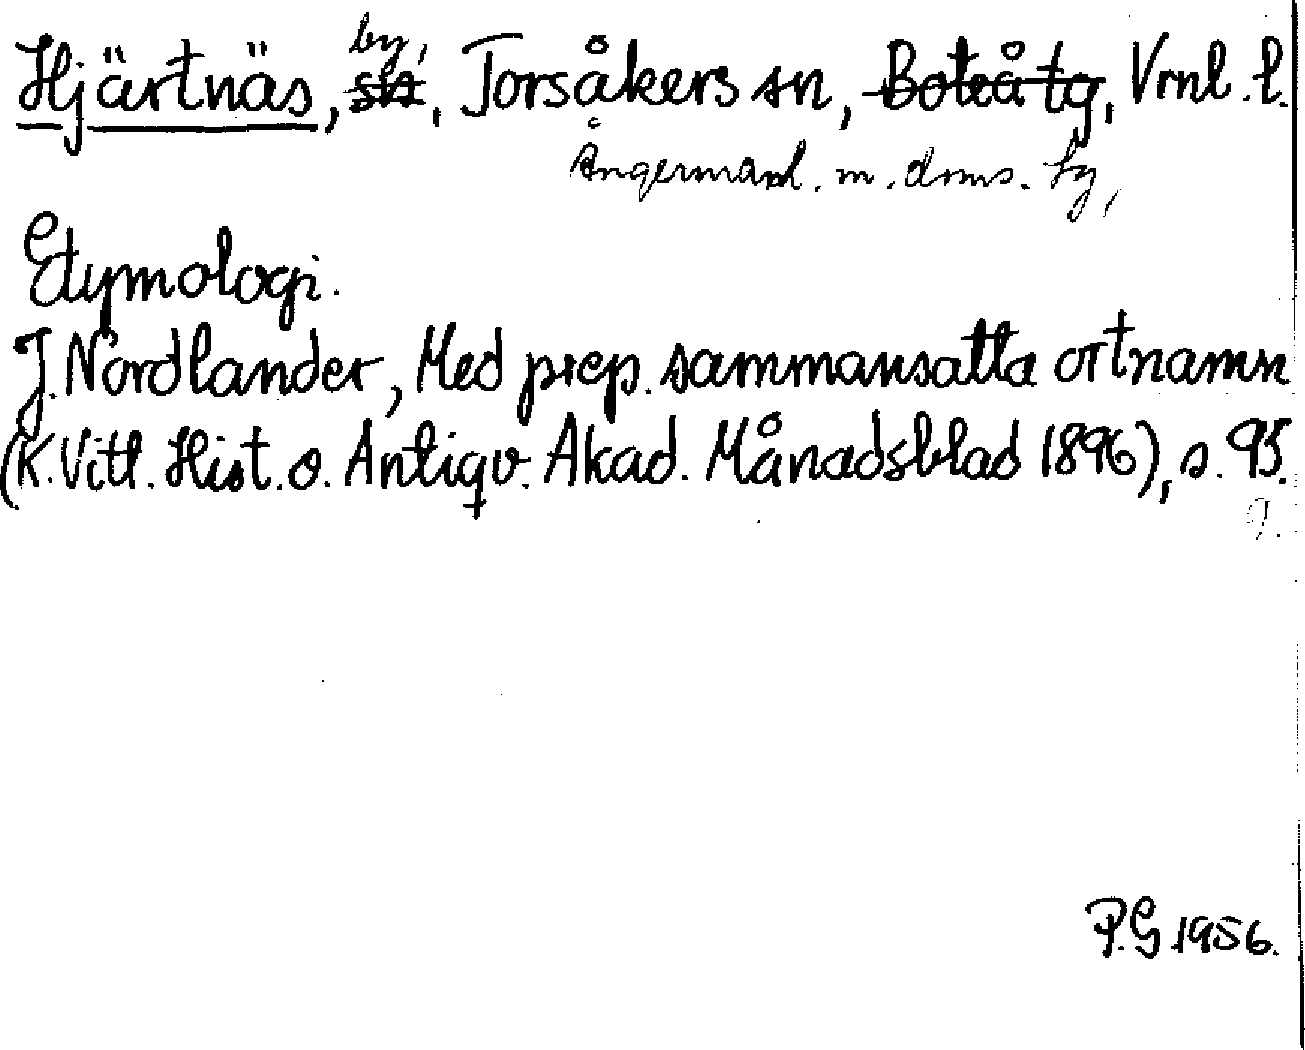 by,
Hjärtnäs, sn, Torsåkers sn, Boteå tg, Vrnl. l.
Ångermanl. m. doms. tg,
Etymologi.
J. Nordlander, Med prep. sammansatta ortnamn
(K. Vitt. Hist. o. Antiqv. Akad. Månadsblad 1896), s. 95.
9.
P.G 1956.